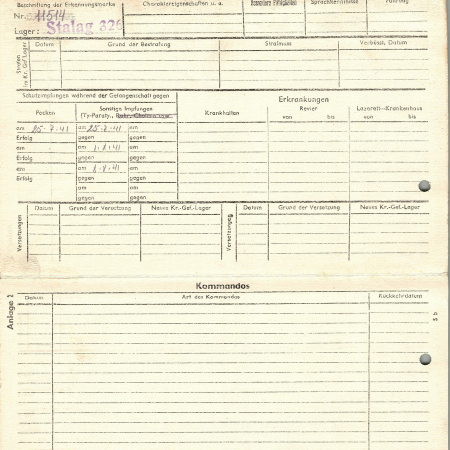 Beschriftung der Erkennungsmarke
Charaktereigenschaften u. a.
Besondere Fähigkeiten
Sprachkenntnisse
Führung
Nr. 11514
Lager: Stalag 326
Strafen im Kr. Gef. Lager
Datum
Grund der Bestrafung
Strafmaß
Verbüsst, Datum
Schutzimpfungen während der Gefangenschaft gegen
Erkrankungen
Pocken
Sonstige Impfungen
(Ty-Paraty., Ruhr, Cholera usw.
Krankheiten
Revier
von bis
Lazarett—Krankenhaus
von bis
am 25.7.41
am 25.7.41
gegen
Erfolg
gegen
gegen
am
am 1.8.41
gegen
Erfolg
gegen
gegen
am
am 8.8.41
gegen
Erfolg
gegen
gegen
am
gegen
am
gegen
Versetzungen
Datum
Grund der Versetzung
Neues Kr.-Gef.-Lager
Versetzungen
Datum
Grund der Versetzung
Neues Kr.-Gef.-Lager
Kommandos
Anlage 2
Datum
Art des Kommandos
Rückkehrdatum